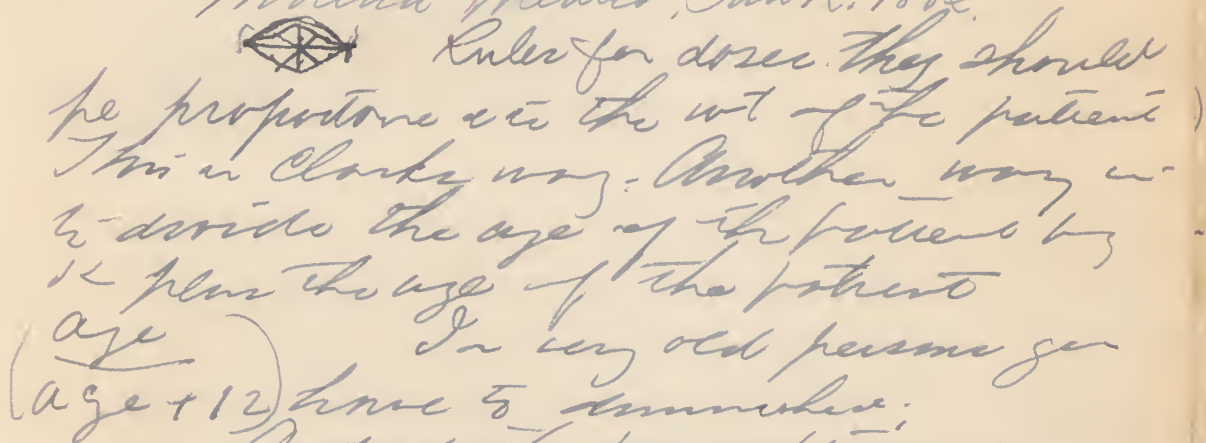 Materia Medica, Jan
Rules for doses. they should
be proportionate to the wt of the patient
This is Clarks way. Another way is
to divide the age of the patient by
12 plus the age of the patient
age In very old persons you
(age + 12) have to diminished.